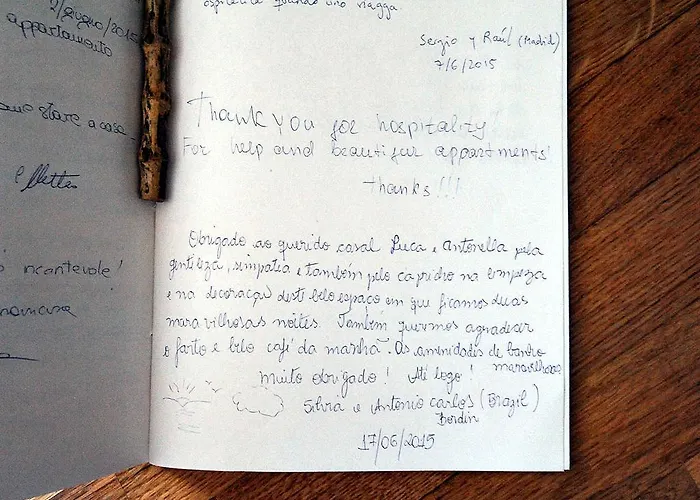 2/giugno/2015
appartamento
stare a casa
incantevole!
quando uno viagga
Sergio y Raúl (Madrid)
7/6/2015
Thank you for hospitality!
For help and beautifur appartments!
thanks!!!
Obrigado ao querido casal Luca e Antonella pela
gentileza, simpatia e também pelo capricho na limpeza
e na decoração deste belo espaço em que ficamos duas
maravilhosas noites. Também queremos agradecer
o farto e belo café da manhã. As amenidades de banho
maravilhosas
Muito obrigado! Até logo!
Silvia e Antonio Carlos (Brazil)
Bordin
17/06/2015